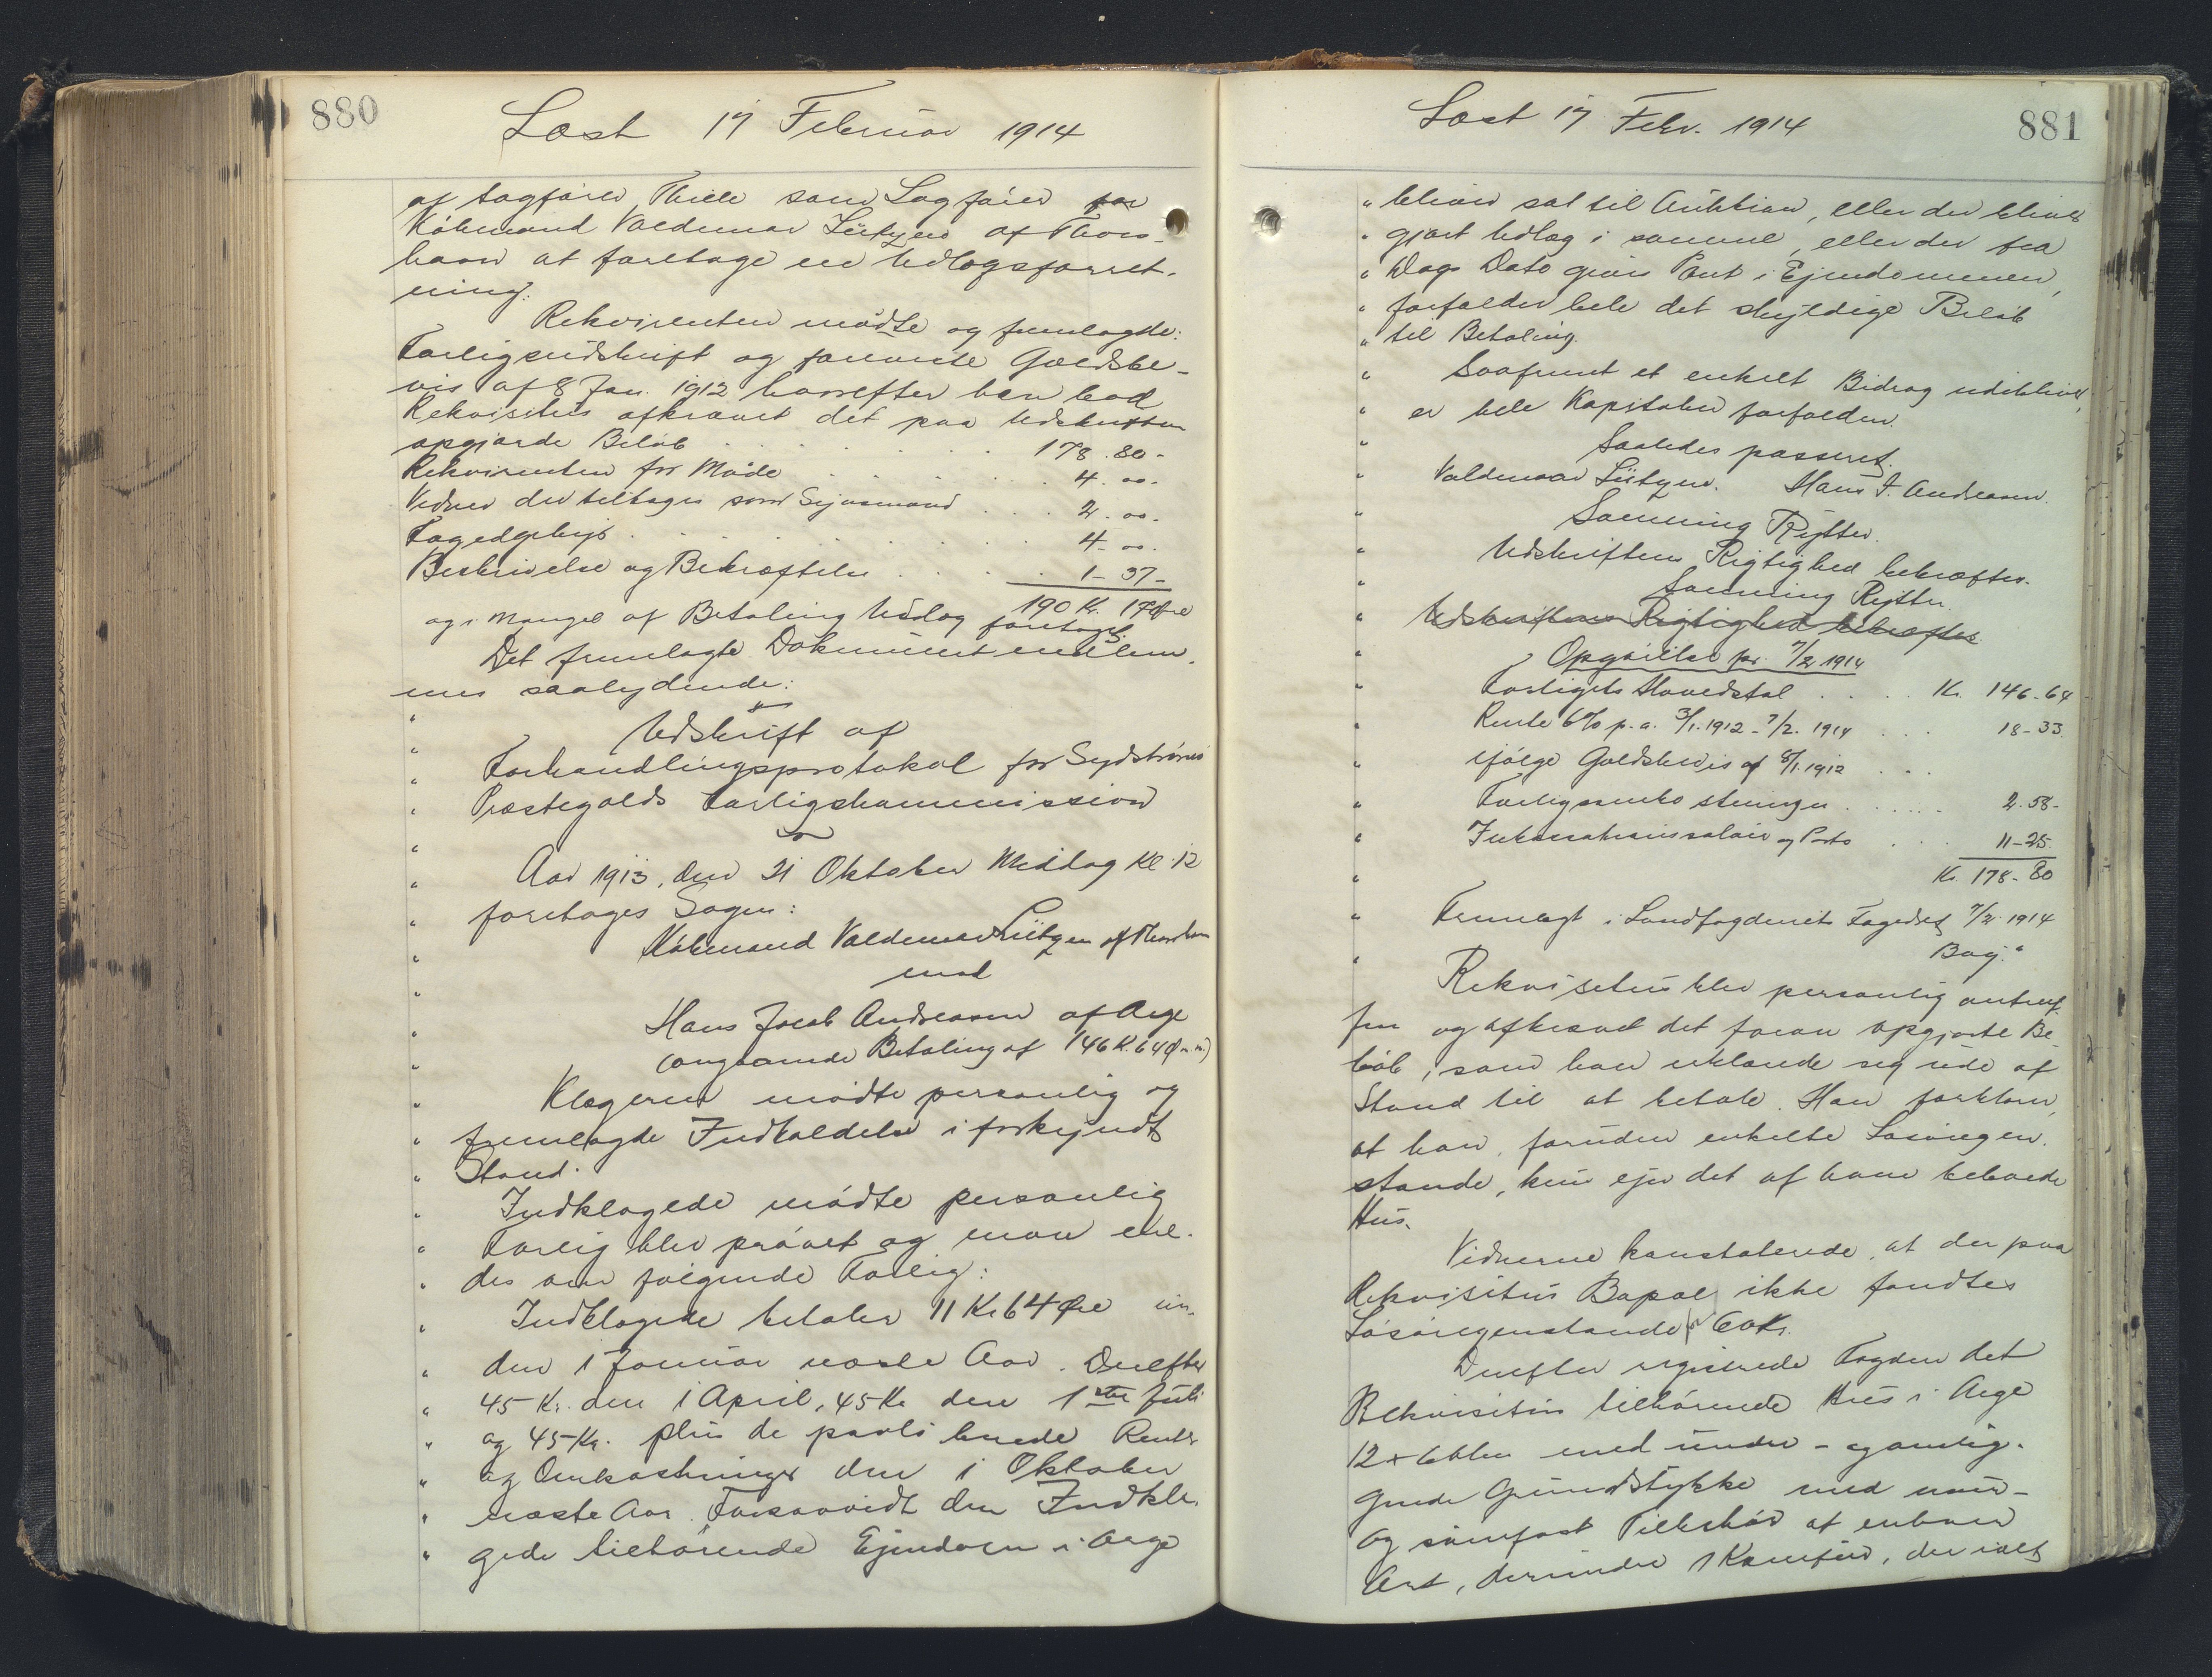 880
Læst 17 Februar 1914
af Sagfører Thiele som Sagfører for
Købmand Valdemar Lützen af Thors-
havn at foretage en Udlægsforret-
ning.
Rekvirenten mødte og fremlagde:
Forligsudskrift og foreviste Gældsbe-
vis af 8 Jan. 1912 hvorefter han bad
Rekvisitus afkrævet det paa Udskriften
opgjorde Beløb . . . . . . 178.80-
Rekvirenten for Møde . . . . . 4.00-
Vidner der tiltages som Synsmænd . . . 2.00-
Fogedgebyr . . . . . . . . 4-00-
Beskrivelse og Bekræftelse . . . . 1-37-
190 Kr. 17 Øre
og i Mangel af Betaling Udlæg foretaget.
Det fremlagte Dokument indlem-
mes saalydende:
" Udskrift af
" Forhandlingsprotokol for Sydstrømø
" Præstegælds Forligskommission
" Aar 1913, den 21 Oktober Middag Kl. 12
" foretages Sagen:
" Købmand Valdemar Lützen af Thorshavn
" mod
" Hans Jacob Andreasen af Arge
" (angaaende Betaling af 146 K. 64 Ø m.m.)
" Klageren mødte personlig og
" fremlagde Indkaldelse i forkyndt
" Stand.
" Indklagede mødte personlig
" Forlig blev prøvet og man ene-
" des om følgende Forlig:
" Indklagede betaler 11 Kr 64 Øre in-
" den 1 Januar næste Aar. Derefter
" 45 Kr. den 1 April, 45 Kr den 1ste Juli
" og 45 Kr. plus de paaløbende Renter
" og Omkostninger den 1 Oktober
" næste Aar. Forsaavidt den Indkla-
" gede tilhørende Ejendom i Arge
Læst 17 Febr. 1914
881
" bliver sat til Auktion, eller der bliver
" gjort Udlæg i samme, eller der fra
" Dags Dato gives Pant i Ejendommen,
" forfalder hele det skyldige Beløb
" til Betaling.
" Saafremt et enkelt Bidrag udebliver,
" er hele Kapitalen forfalden.
" Saaledes passeret.
" Valdemar Lützen. Hans J. Andreasen.
" Sæmming Rytter.
" Udskriftens Rigtighed bekræftes.
" Sæmming Rytter.
" Udskriftens Rigtighed bekræftes
" Opgørelse pr. 7/2 1914
" Forligets Hovedstol . . . . Kr. 146-64
" Rente 6% p.a. 3/1.1912 - 7/2. 1914 . . . 18-33.
ifølge Gældsbevis af 8/1.1912 . . .
" Forligsomkostninger . . . . . . 2.58-
" Inkassationssalær og Porto . . . 11-25
" Kr. 178-80
" Fremlagt i Landfogderiets Fogedret 7/2 1914
" Bag."
Rekvisitus blev personlig antruf-
fen og afkrævet det foran opgjorte Be-
løb, som han erklærede sig ude af
Stand til at betale. Han forklarer,
at han, foruden enkelte Løsøregen-
stande, kun ejer det af ham beboede
Hus.
Vidnerne konstaterede, at der paa
Rekvisitus Bopæl ikke fandtes
Løsøregenstande for 60 Kr.
Derefter registrerede Fogden det
Rekvisitus tilhørende Hus i Arge
12 x 6 Alen med under- og omlig-
gende Grundstykke med mur-
og sømfast Tilbehør af enhver
Art, derunder 1 Komfur, der ialt